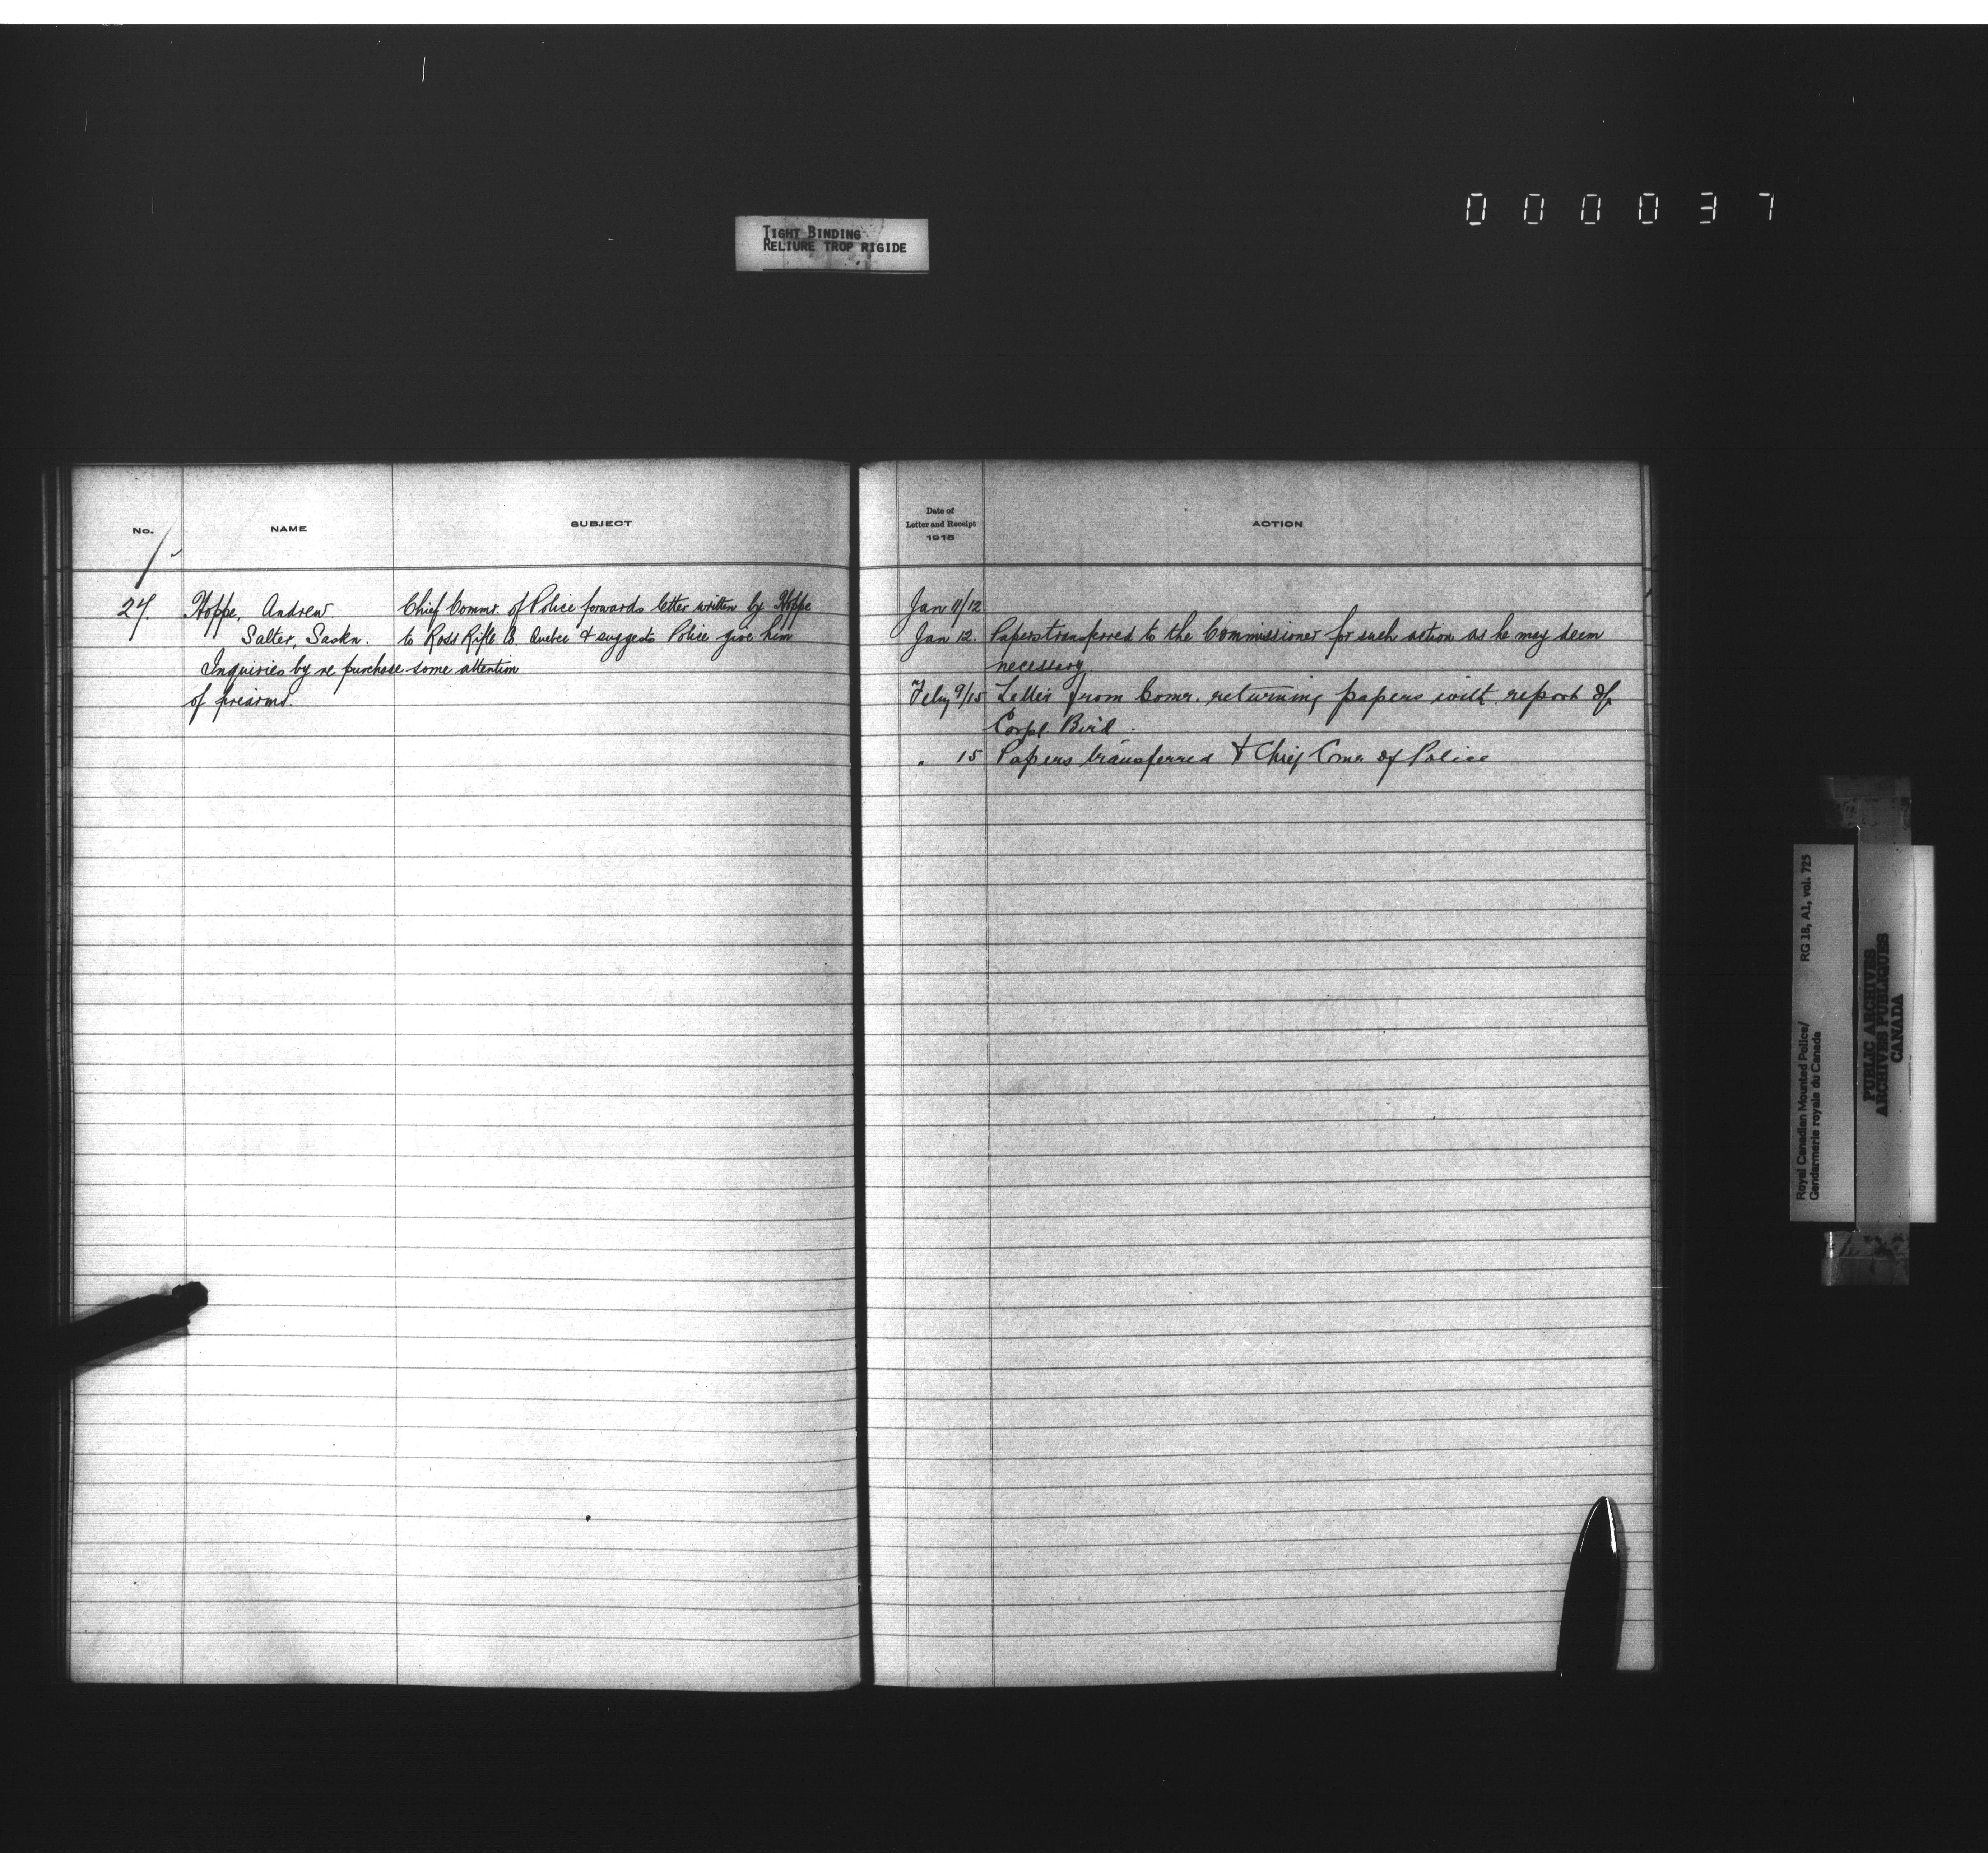 0 0 0 0 3 7
TIGHT BINDING
RELIURE TROP RIGIDE
No.
NAME
SUBJECT
Date of
Letter and Receipt
1915
ACTION
27.
Hoppe, Andrew
Salter, Saskn.
Inquiries by re purchase
of firearms.
Chief Commr. of Police forwards letter written by Hoppe
to Ross Rifle Co. Quebec & suggests Police give him
some attention
Jan 11/12
Jan 12. Papers transferred to the Commissioner for such action as he may deem
necessary.
Feby 9/15 Letter from Comr. returning papers with report of
Corpl. Bird.
" 15 Papers transferred to Chief Comr of Police
Royal Canadian Mounted Police/ RG 18, A1, vol. 725
Gendarmerie royale du Canada
PUBLIC ARCHIVES
ARCHIVES PUBLIQUES
CANADA